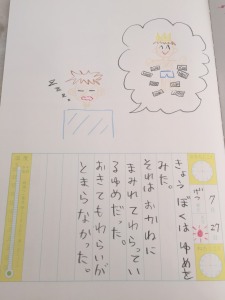 7
27
きょうぼくはゆめを
みた。
それはおかねに
まみれてわらってい
るゆめだった。
おきてもわらいが
とまらなかった。
zzzz